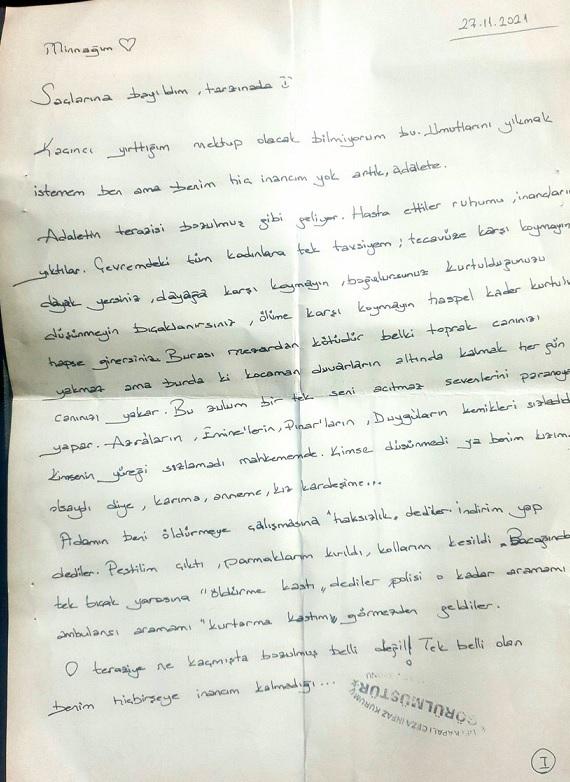 27.11.2021
Minnağım ♡
Saçlarına bayıldım, tarzınada :)
Kaçıncı yırttığım mektup olacak bilmiyorum bu. Umutlarını yıkmak
istemem ben ama benim hiç inancım yok artık, adalete.
Adaletin terazisi bozulmuş gibi geliyor. Hasta ettiler ruhumu, inançları
yıktılar. Çevremdeki tüm kadınlara tek tavsiyem; tecavüze karşı koymayın
dayak yersiniz, dayağa karşı koymayın, boğulursunuz kurtulduğunuzu
düşünmeyin bıçaklanırsınız, ölüme karşı koymayın haspel kader kurtulu
hapse girersiniz. Burası mezardan kötüdür belki toprak canınızı
yakmaz ama burda ki kocaman duvarların altında kalmak her gün
canınızı yakar. Bu zulum bir tek seni acıtmaz sevenlerini paranoya
yapar. Azraların, Emine'lerin, Pınar'ların, Duyguların kemikleri sızladı
kimsenin yüreği sızlamadı mahkemende. Kimse düşünmedi ya benim kızım
olsaydı diye, karıma, anneme, kız kardeşime...
Adamın beni öldürmeye çalışmasına "haksızlık" dediler indirim yap
dediler. Pestilim çıktı, parmaklarım kırıldı, kollarım kesildi. Bacağında
tek bıçak yarasına "öldürme kastı" dediler polisi o kadar aramamı
ambulansı aramamı "kurtarma kastımı" görmezden geldiler.
O teraziye ne kaçmışta bozulmuş belli değil! Tek belli olan
benim hiçbirşeye inancım kalmadığı...
KAPALI CEZA İNFAZ KURUMU
GÖRÜLMÜŞTÜR
I